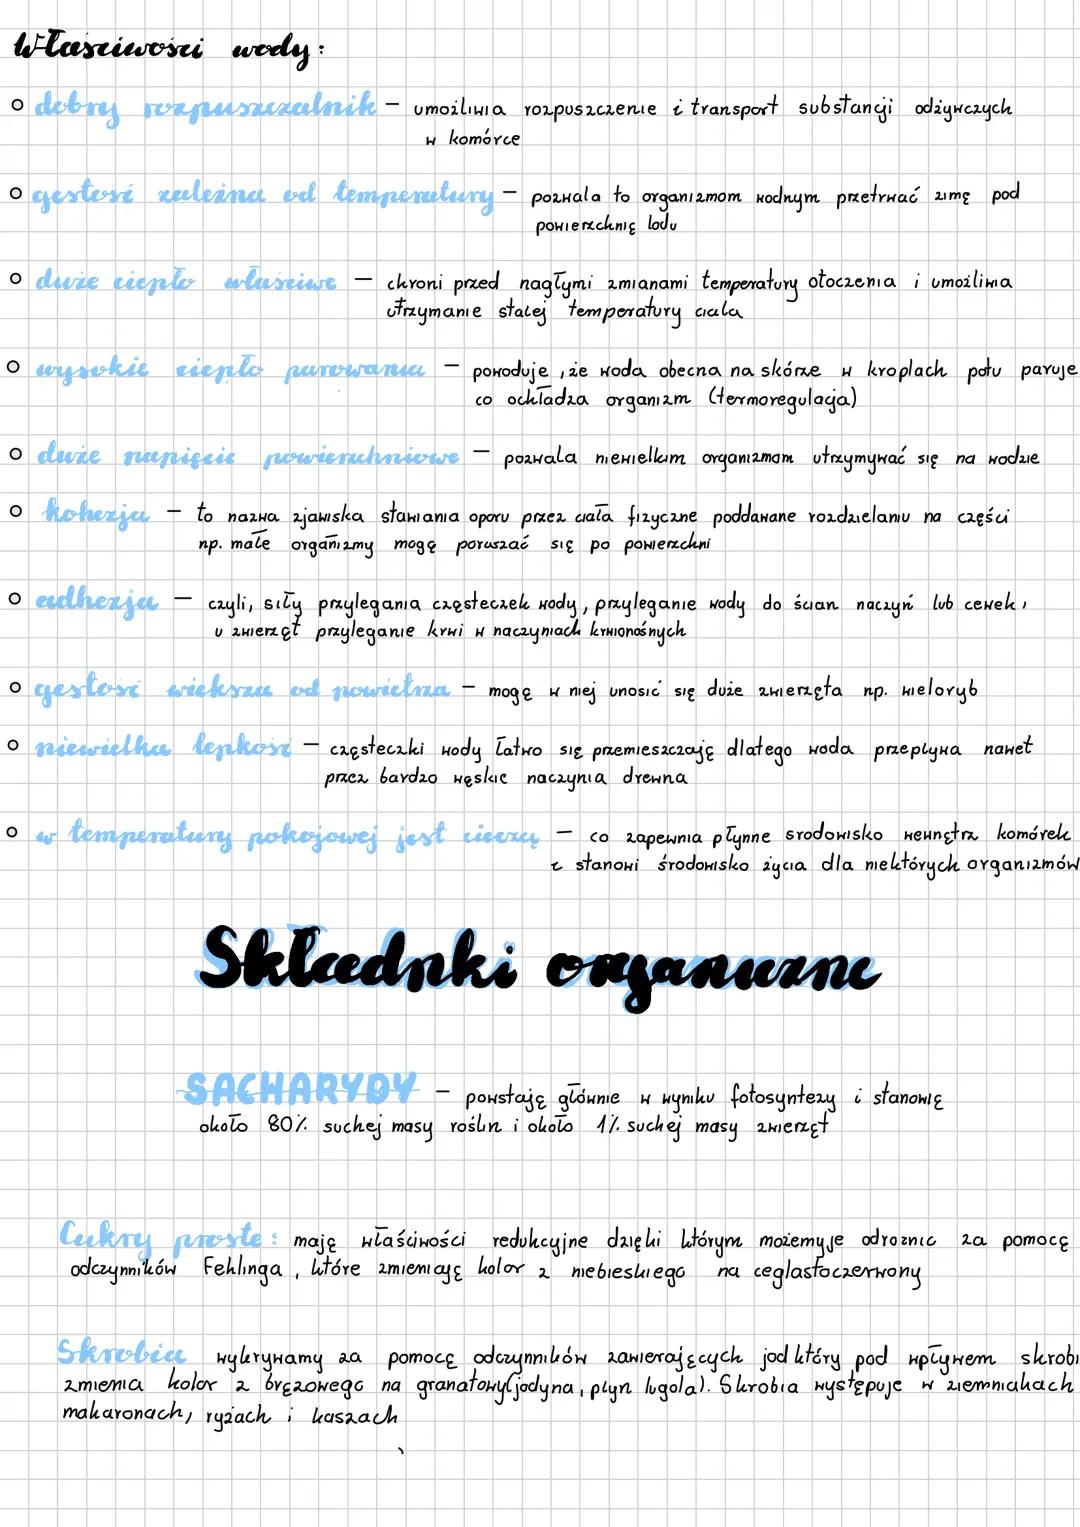 Właściwości wody:
o dobry rozpuszczalnik – umożliwia rozpuszczenie i transport substancji odżywczych
w komórce
o gęstość zależna od temperatury – pozwala to organizmom wodnym przetrwać zimę pod
powierzchnię lodu
o duże ciepło właściwe – chroni przed nagłymi zmianami temperatury otoczenia i umożliwia
utrzymanie stałej temperatury ciała
o wysokie ciepło parowania – powoduje, że woda obecna na skórze w kroplach potu paruje
co ochładza organizm (termoregulacja)
o duże napięcie powierzchniowe – pozwala niewielkim organizmom utrzymywać się na wodzie
o kohezja – to nazwa zjawiska stawiania oporu przez ciała fizyczne poddawane rozdzielaniu na części
np. małe organizmy mogę poruszać się po powierzchni
o adhezja – czyli, siły przylegania cząsteczek wody, przyleganie wody do ścian naczyń lub cewek,
u zwierząt przyleganie krwi w naczyniach krwionośnych
o gęstość większa od powietrza – mogę w niej unosić się duże zwierzęta np. wieloryb
o niewielka lepkość – cząsteczki wody łatwo się przemieszczają dlatego woda przepływa nawet
przez bardzo wąskie naczynia drewna
o w temperatury pokojowej jest cieczą – co zapewnia płynne srodowisko wewnątrz komórek
i stanowi środowisko życia dla niektórych organizmów
Składniki organiczne
SACHARYDY – powstają głównie w wyniku fotosyntezy i stanowią
około 80% suchej masy roślin i około 1% suchej masy zwierząt
Cukry proste: mają właściwości redukcyjne dzięki którym możemyje odroznic za pomocą
odczynników Fehlinga, które zmieniają kolor z niebieskiego na ceglastoczerwony
Skrobia wykrywamy za pomocą odczynników zawierających jod który pod wpływem skrobi
zmienia kolor z brązowego na granatowy(jodyna, płyn lugola). Skrobia występuje w ziemniakach
makaronach, ryżach i kaszach